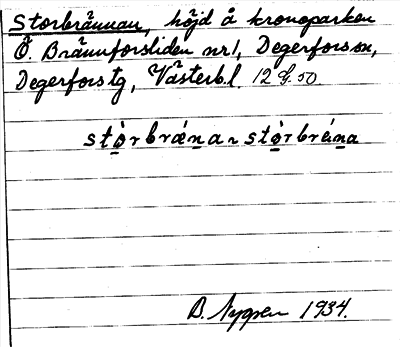 Storbrännan, höjd å kronoparken
Ö. Brännforsliden nr 1, Degerfors sn,
Degerfors tg, Västerb.l. 12 G. 50
stòrbrǽna ~ stòrbréna
B. Nygren 1934.